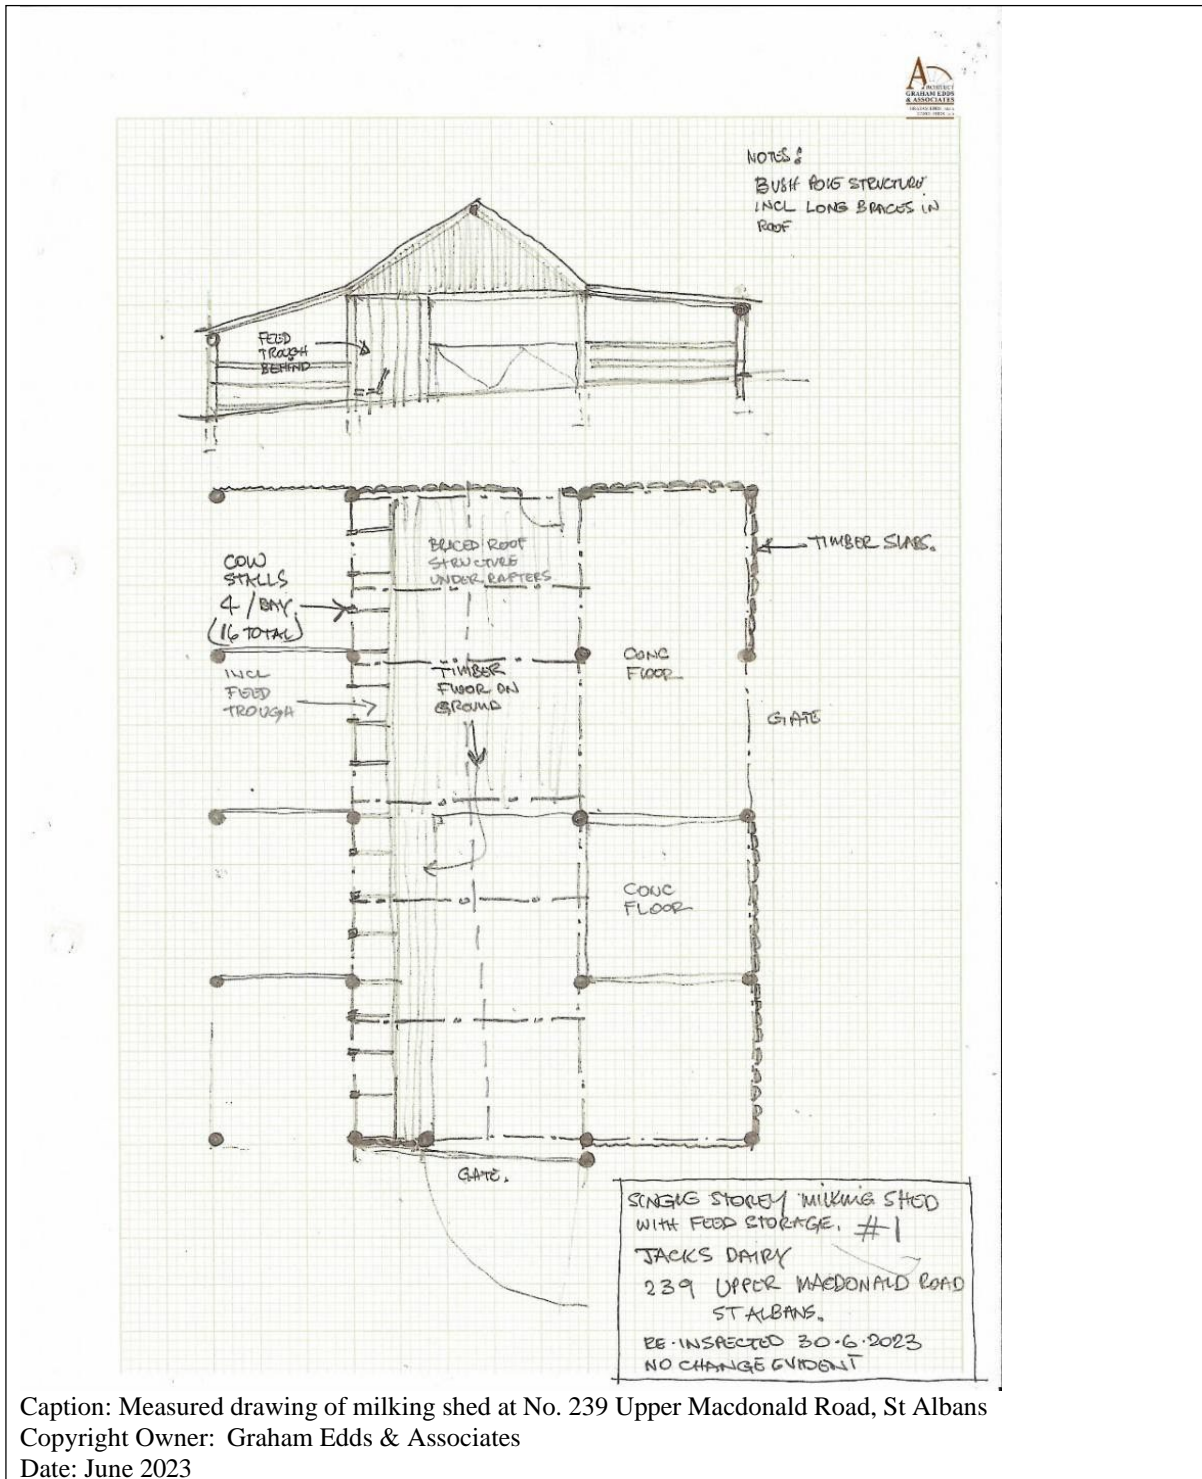 ARCHITECT
GRAHAM EDDS
& ASSOCIATES
NOTES:
BUSH POLE STRUCTURE
INCL LONG BRACES IN
ROOF
FEED
TROUGH
BEHIND
BRACED ROOF
STRUCTURE
UNDER RAFTERS
TIMBER SLABS.
COW
STALLS
4/BAY
(16 TOTAL)
INCL
FEED
TROUGH
TIMBER
FLOOR ON
GROUND
CONC
FLOOR
GATE
CONC
FLOOR
GATE.
SINGLE STOREY MILKING SHED
WITH FEED STORAGE. #1
JACKS DAIRY
239 UPPER MACDONALD ROAD
ST ALBANS.
RE-INSPECTED 30.6.2023
NO CHANGE EVIDENT
Caption: Measured drawing of milking shed at No. 239 Upper Macdonald Road, St Albans
Copyright Owner: Graham Edds & Associates
Date: June 2023